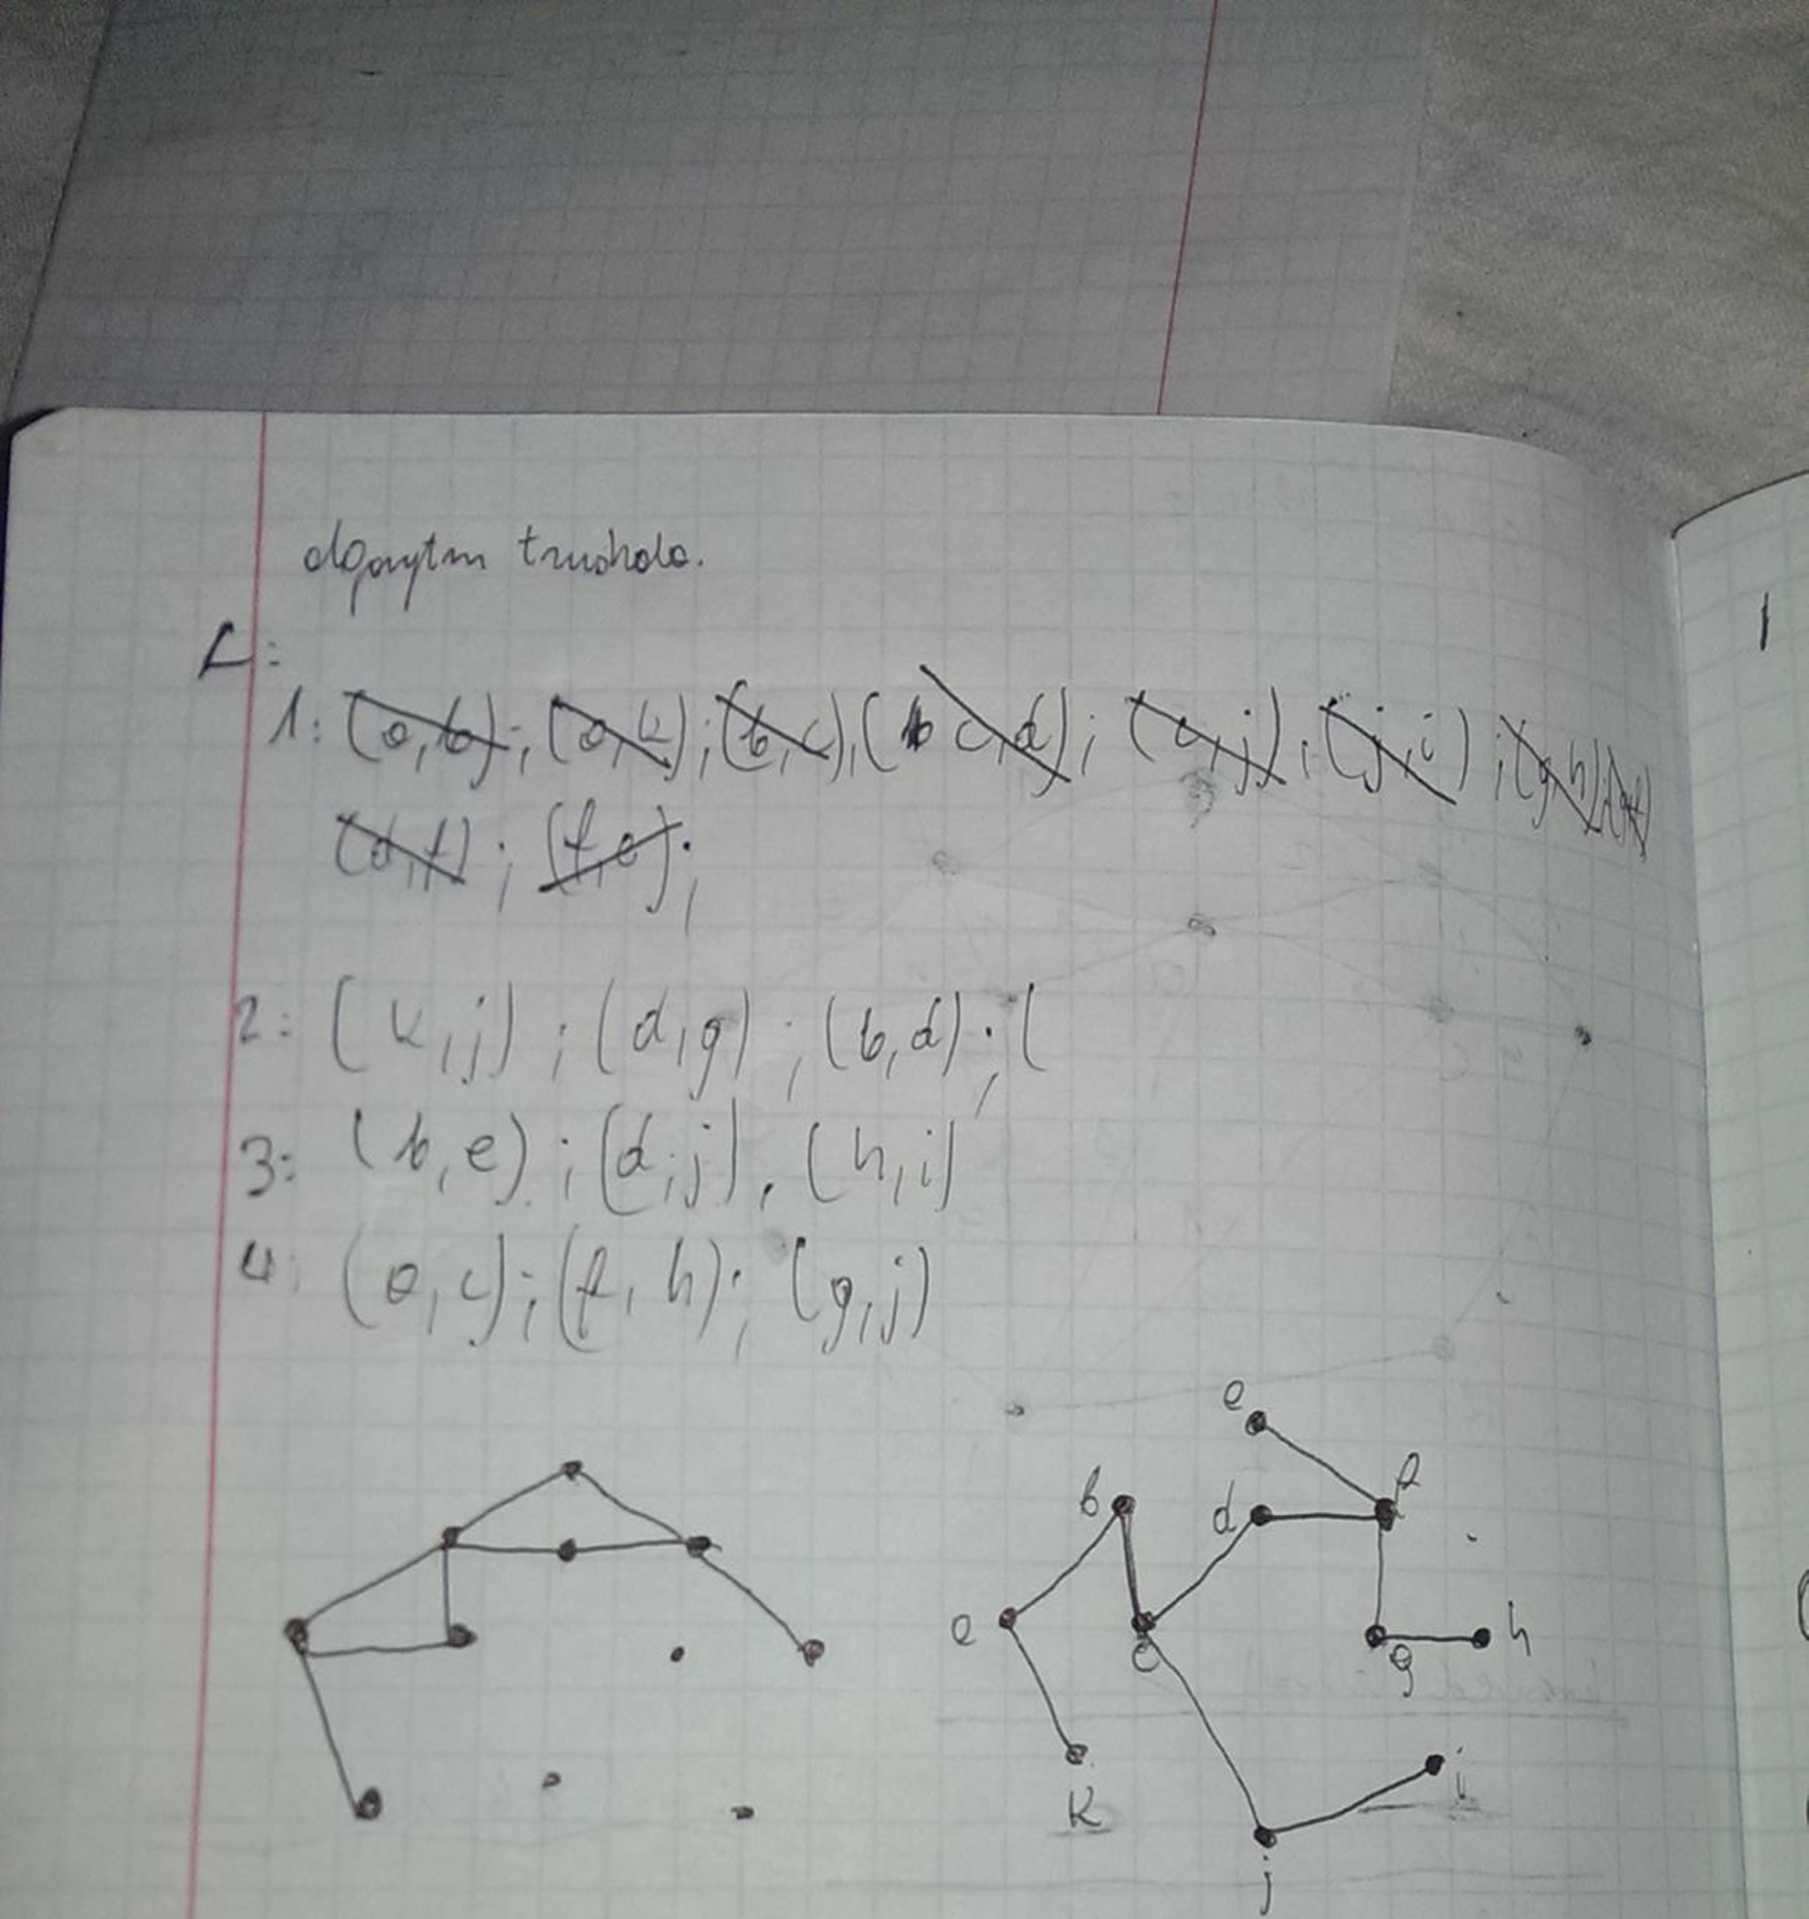 algorytm
L:
1: (a,b); (a,k); (b,c), (c,d); (c,j); (j,i); (g,h);
(d,f); (f,e);
2: (k,j); (d,g); (b,d); (
3: (b,e); (d,j), (h,i)
4: (a,c); (f,h); (g,j)
e
b d f
a c g h
k i
j
1